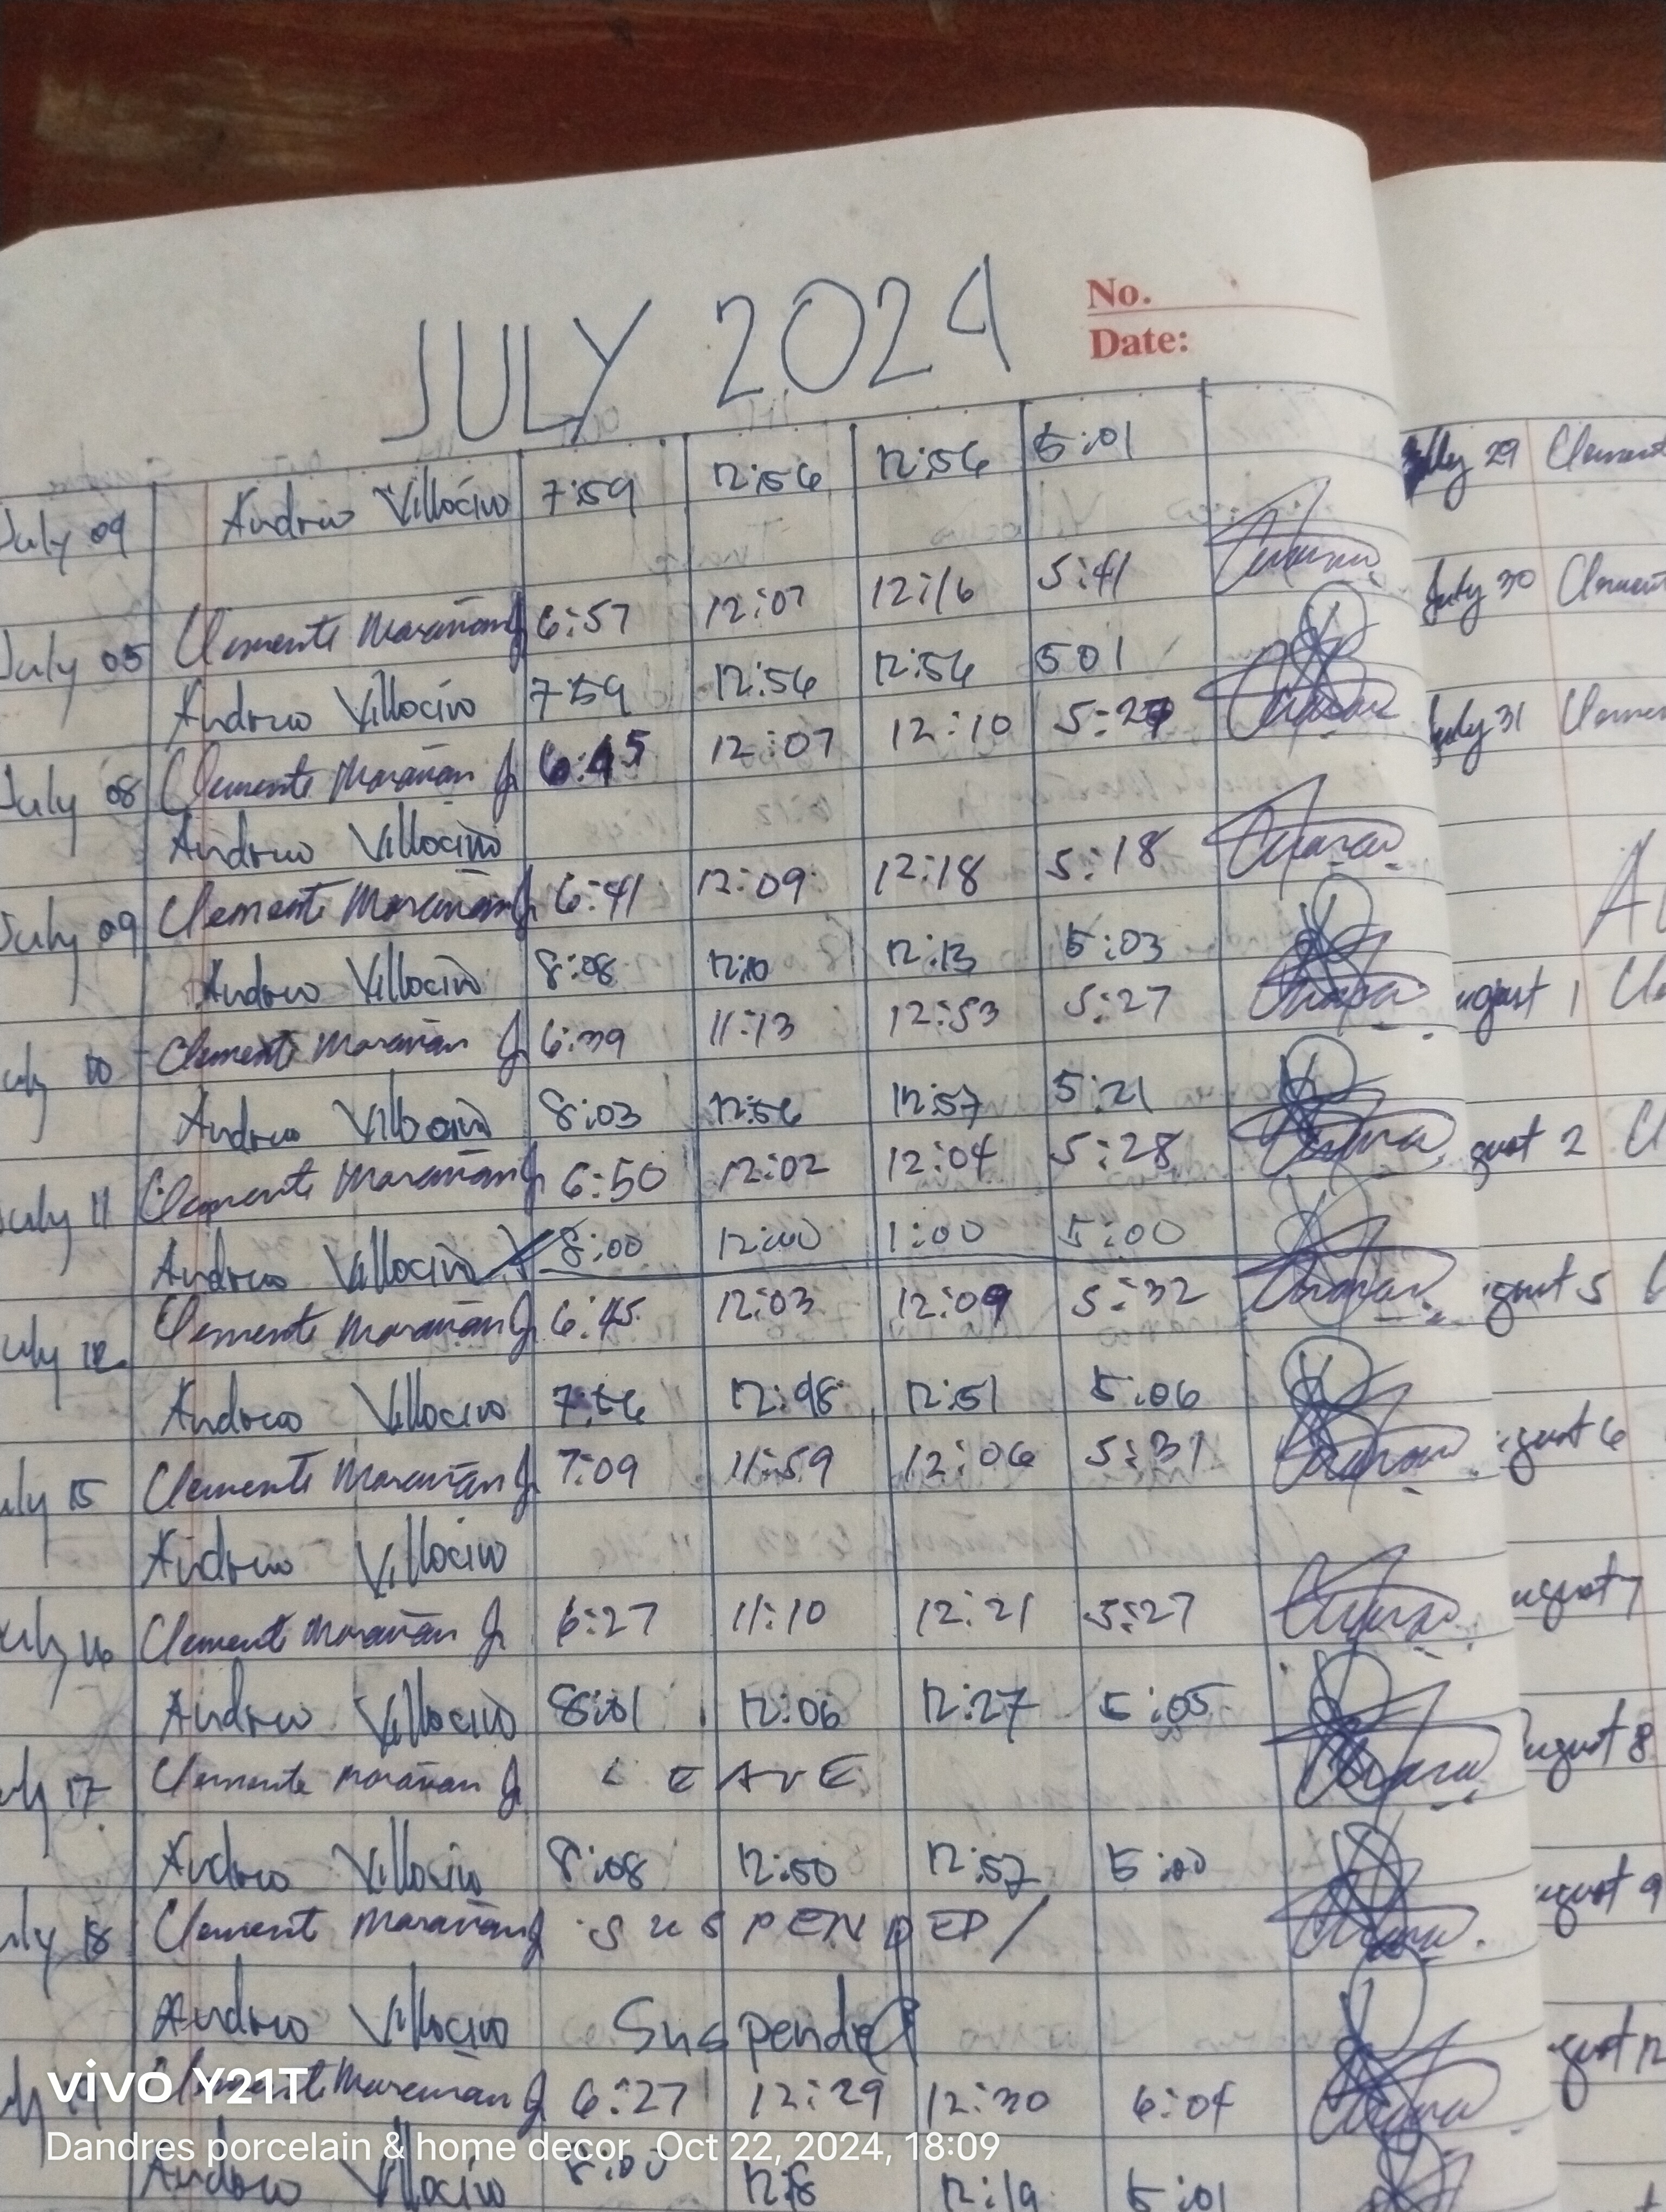 JULY 2024
No.
Date:
July 09 Andrew Villocino 7:59 12:56 12:56 5:01
July 05 Clemente Marañan Jr 6:57 12:07 12:16 5:41
Andrew Villocino 7:59 12:56 12:56 501
July 08 Clemente Marañan Jr 6:45 12:07 12:10 5:27
Andrew Villocino
July 09 Clemente Marañan Jr 6:41 12:09 12:18 5:18
Andrew Villocino 8:08 12:10 12:13 5:03
uly 10 Clemente Marañan Jr 6:39 11:13 12:53 5:27
Andrew Villocino 8:03 12:56 12:57 5:21
uly 11 Clemente Marañan Jr 6:50 12:02 12:04 5:28
Andrew Villocino 8:00 12:00 1:00 5:00
uly 12 Clemente Marañan Jr 6:45 12:03 12:09 5:32
Andrew Villocino 7:56 12:48 12:51 5:06
uly 15 Clemente Marañan Jr 7:09 11:59 12:06 5:31
Andrew Villocino
uly 16 Clemente Marañan Jr 6:27 11:10 12:21 5:27
Andrew Villocino 8:01 12:06 12:27 5:05
ly 17 Clemente Marañan Jr LEAVE
Andrew Villocino 8:08 12:50 12:57 5:00
uly 18 Clement Marañan Jr SUSPENDED/
Andrew Villocino Suspended
Marañan Jr 6:27 12:29 12:30 6:04
Andrew Villocino 8:00 12:18 12:19 5:01
July 29 Clement
July 30 Clement
July 31 Clemen
AU
ugust 1 Cle
gust 2 Cl
ugust 5
ugust 6
ugust 7
ugust 8
ugust 9
gust 12
vivo Y21T
Dandres porcelain & home decor, Oct 22, 2024, 18:09